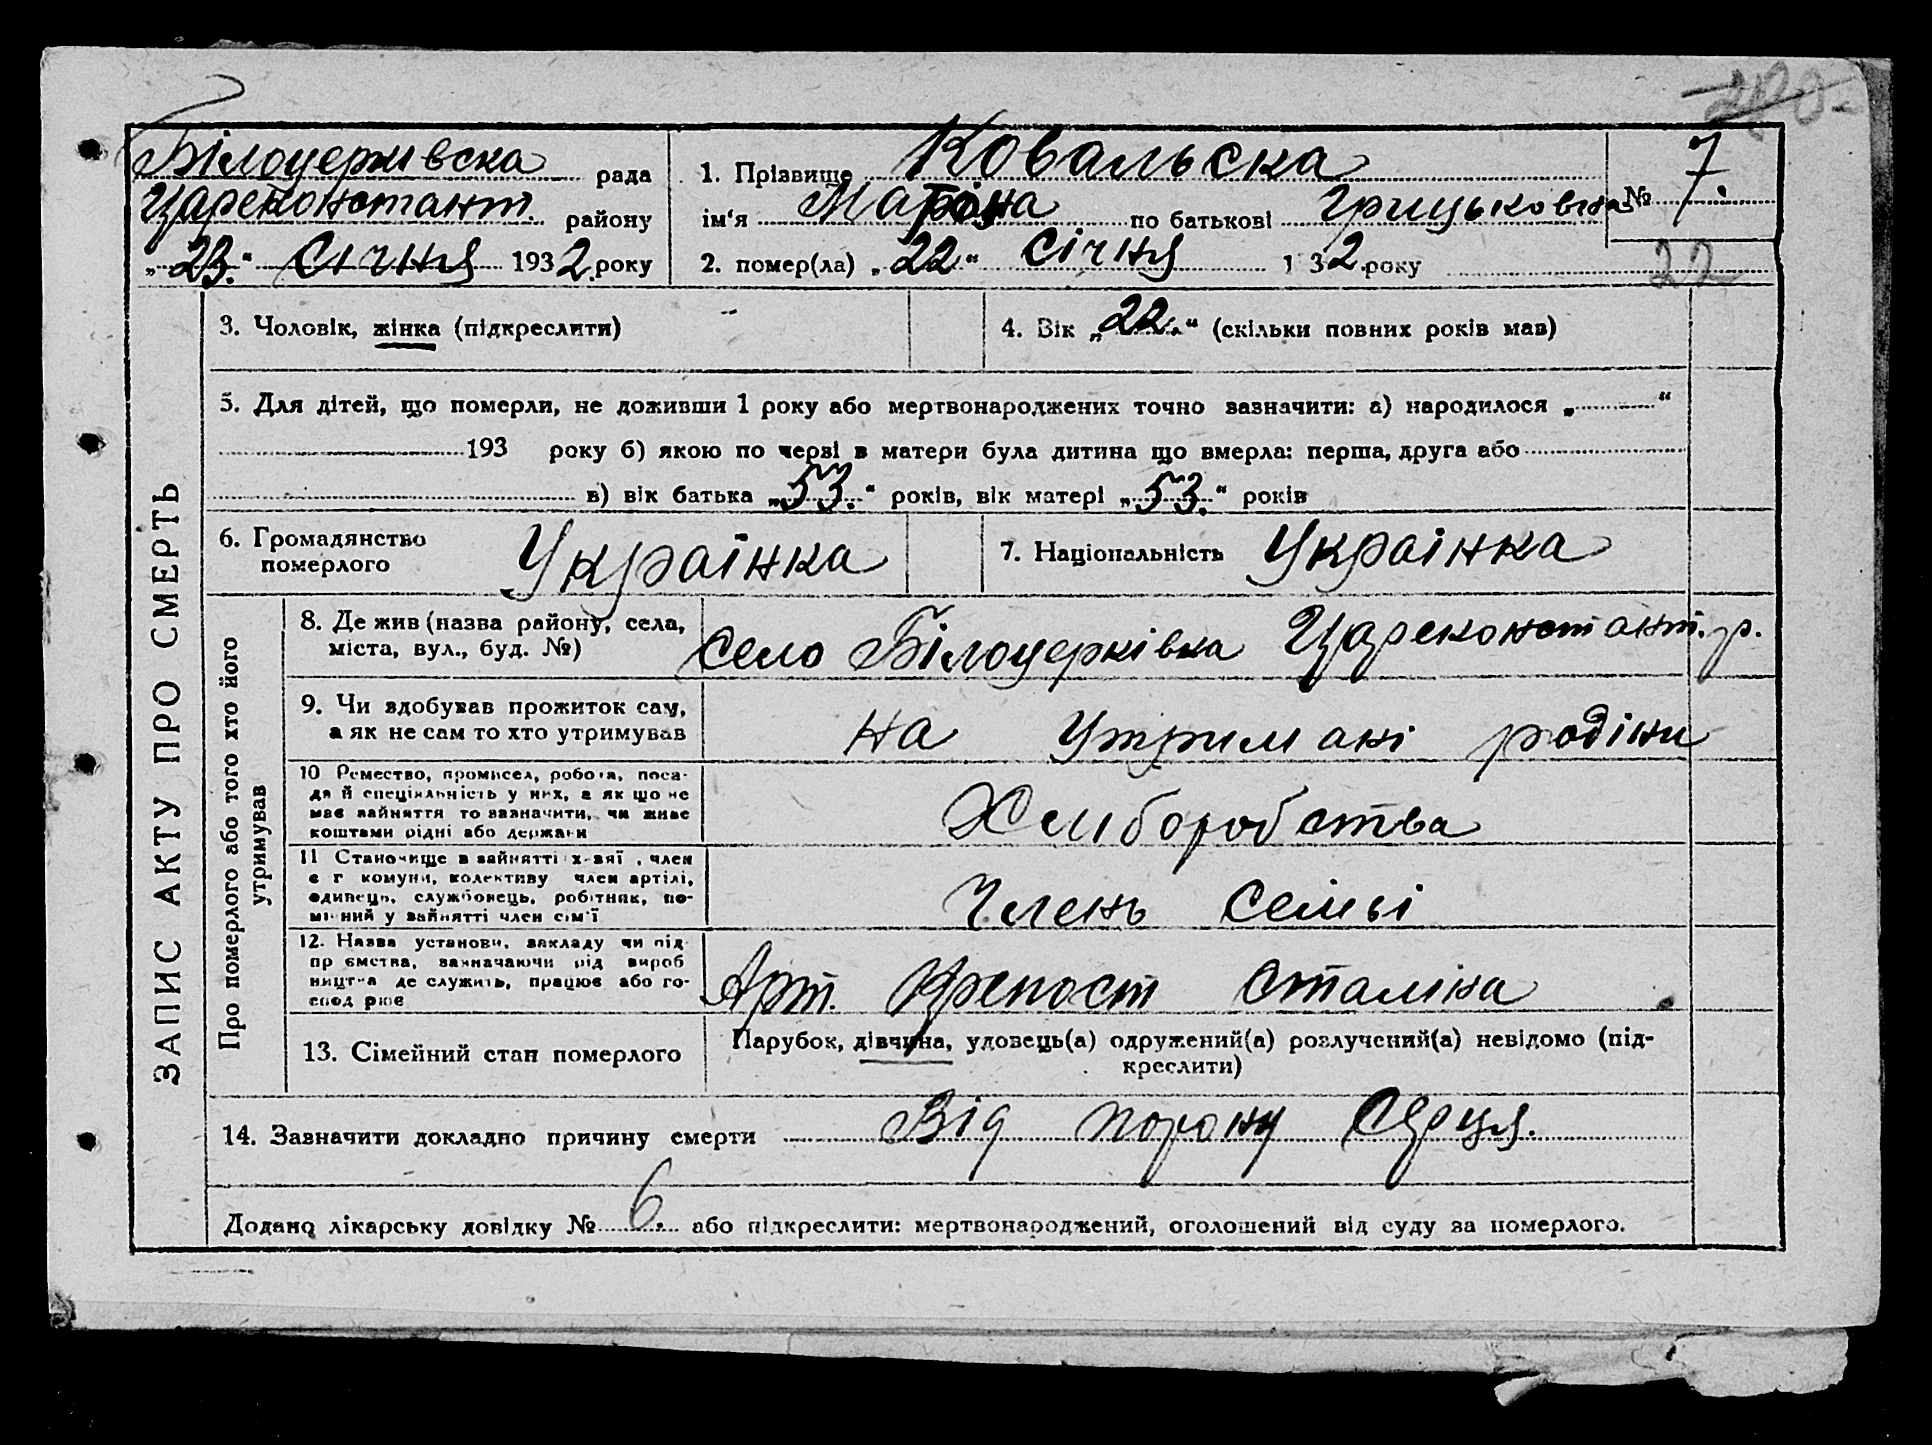 Білоцерківска рада
Цареконстант. району
„23.“ Січня 1932 року
1. Прізвище Ковальська
ім'я по батькові Грицьковна
№ 7.
2. помер(ла) „22“ Січня 1932 року
22
3. Чоловік, жінка (підкреслити)
4. Вік „22.“ (скільки повних років мав)
5. Для дітей, що померли, не доживши 1 року або мертвонароджених точно зазначити: а) народилося „ “
193 року б) якою по черзі в матери була дитина що вмерла: перша, друга або
в) вік батька „53.“ років, вік матері „53.“ років
6. Громадянство
померлого
Українка
7. Національність Українка
ЗАПИС АКТУ ПРО СМЕРТЬ
Про померлого або того хто його
утримував
8. Де жив (назва району, села,
міста, вул., буд. №)
село Білоцерківка Цареконстант. р.
9. Чи здобував прожиток сам,
а як не сам то хто утримував
на утримані родіни
10 Ремество, промисел, робота, поса-
да й спеціяльність у них, а як що не
має зайняття то зазначити, чи живе
коштами рідні або держави
Хлиборобства
11 Становище в зайнятті х-зяї , член
с г комуни, колективу член артілі,
одинець, службовець, робітник, по-
мічний у зайнятті член сім'ї
Члень семьі
12. Назва установи, закладу чи під-
пр ємства, зазначаючи рід вироб
ництва де служить, працює або го-
спод рює
Арт. Крепост Сталіна
13. Сімейний стан померлого
Парубок, дівчина, удовець(а) одружений(а) розлучений(а) невідомо (під-
креслити)
14. Зазначити докладно причину смерти Від пороку Серця.
Додано лікарську довідку № 6. або підкреслити: мертвонароджений, оголошений від суду за померлого.